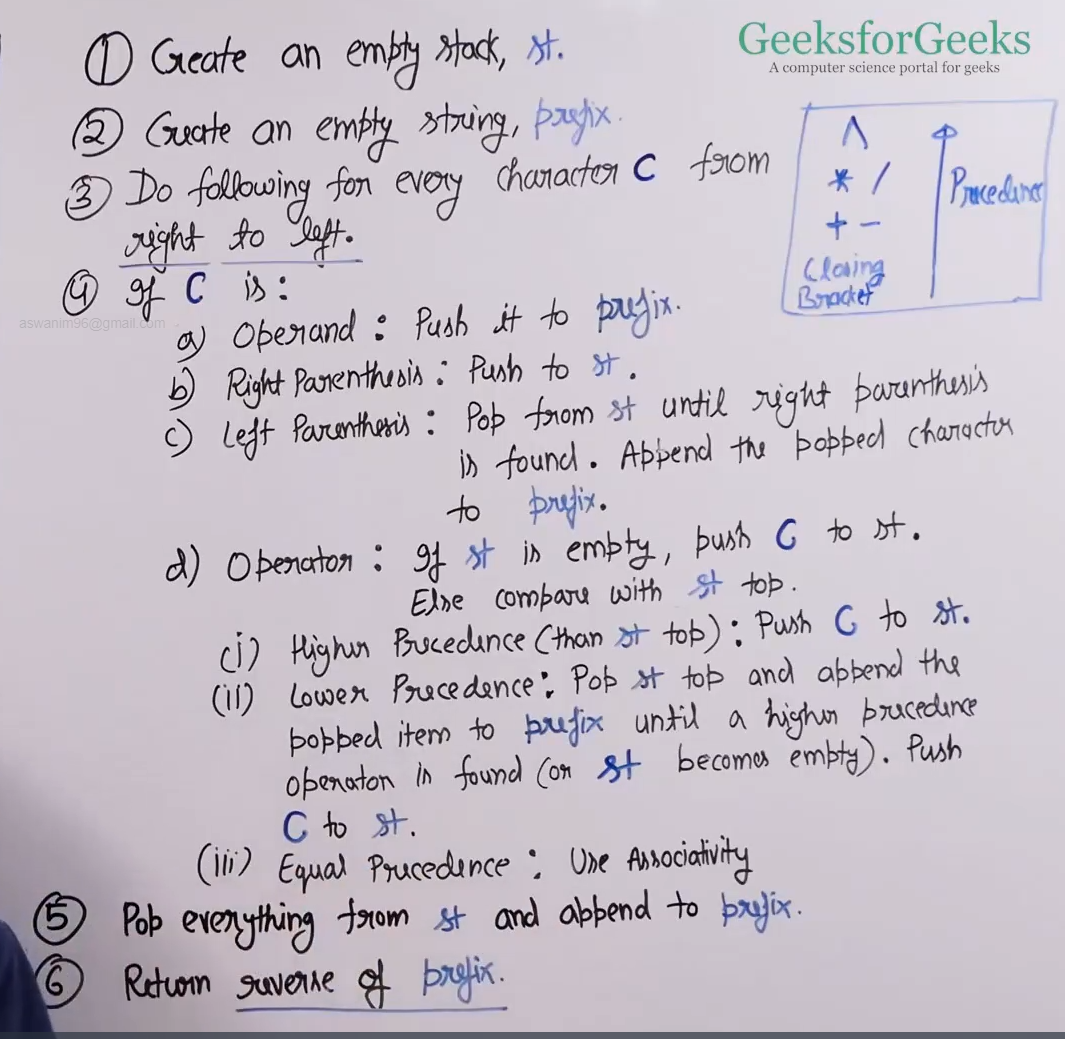 GeeksforGeeks
A computer science portal for geeks
① Create an empty stack, st.
② Create an empty string, prefix.
③ Do following for every character C from
right to left.
④ If C is:
aswanim96@gmail.com
a) Operand : Push it to prefix.
b) Right Parenthesis : Push to st.
c) Left Parenthesis : Pop from st until right parenthesis
is found. Append the popped character
to prefix.
d) Operator : If st is empty, push C to st.
Else compare with st top.
(i) Higher Precedence (than st top) : Push C to st.
(ii) Lower Precedence : Pop st top and append the
popped item to prefix until a higher precedence
operator is found (or st becomes empty). Push
C to st.
(iii) Equal Precedence : Use Associativity
⑤ Pop everything from st and append to prefix.
⑥ Return reverse of prefix.
^
* /
+ -
Closing
Bracket
Precedence